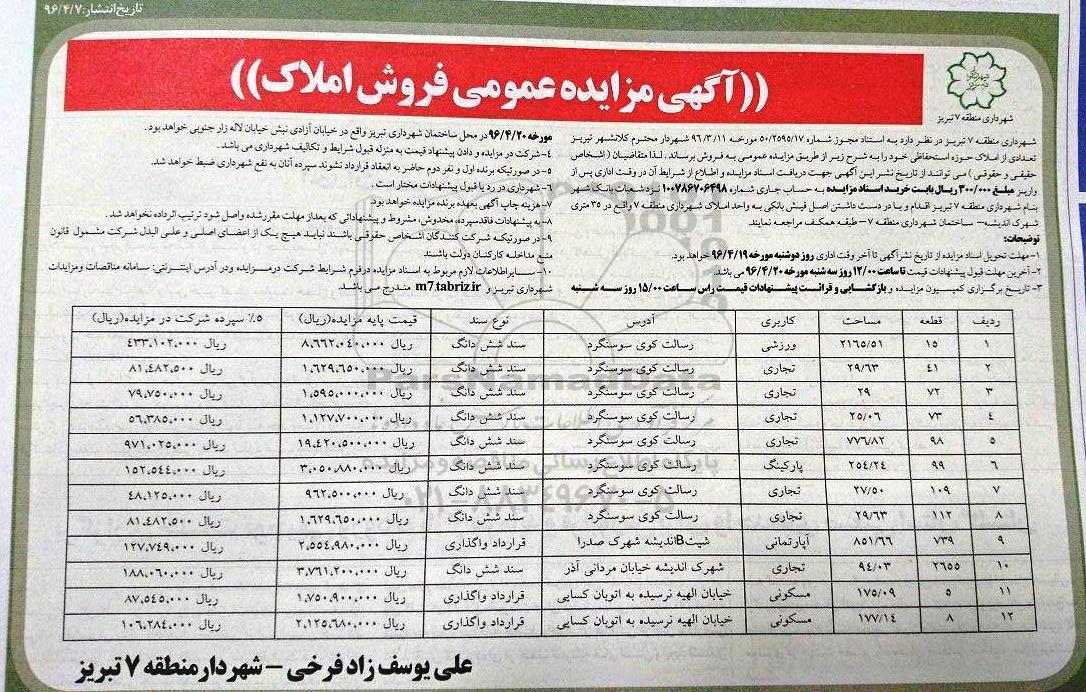 تاریخ انتشار: ۹۶/۴/۷
((آگهی مزایده عمومی فروش املاک))
شهرداری تبریز
شهرداری منطقه ۷ تبریز
شهرداری منطقه ۷ تبریز در نظر دارد به استناد مجوز شماره ۵۰/۲۵۹۵/۱۷ مورخه ۹۶/۳/۱۱ شهردار محترم کلانشهر تبریز
تعدادی از املاک حوزه استحفاظی خود را به شرح زیر از طریق مزایده عمومی به فروش برساند. لذا متقاضیان (اشخاص
حقیقی و حقوقی) می توانند از تاریخ نشر این آگهی جهت دریافت اسناد مزایده و اطلاع از شرایط آن در وقت اداری پس از
واریز مبلغ ۳۰۰/۰۰۰ ریال بابت خرید اسناد مزایده به حساب جاری شماره ۱۰۰۷۸۶۷۰۶۴۹۸ نزد شعبات بانک شهر
بنام شهرداری منطقه ۷ تبریز اقدام و با در دست داشتن اصل فیش بانکی به واحد املاک شهرداری منطقه ۷ واقع در ۳۵ متری
شهرک اندیشه – ساختمان شهرداری منطقه ۷ – طبقه همکف مراجعه نمایند
توضیحات:
۱- مهلت تحویل اسناد مزایده از تاریخ نشر آگهی تا آخر وقت اداری روز دوشنبه مورخه ۹۶/۴/۱۹ خواهد بود.
۲- آخرین مهلت قبول پیشنهادات قیمت تا ساعت ۱۲/۰۰ روز سه شنبه مورخه ۹۶/۴/۲۰ می باشد.
۳- تاریخ برگزاری کمیسیون مزایده و بازگشایی و قرائت پیشنهادات قیمت راس ساعت ۱۵/۰۰ روز سه شنبه
مورخه ۹۶/۴/۲۰ در محل ساختمان شهرداری تبریز واقع در خیابان آزادی نبش خیابان لاله زار جنوبی خواهد بود.
۴- شرکت در مزایده و دادن پیشنهاد قیمت به منزله قبول شرایط و تکالیف شهرداری می باشد.
۵- در صورتیکه برنده اول و نفر دوم حاضر به انعقاد قرارداد نشوند سپرده آنان به نفع شهرداری ضبط خواهد شد.
۶- شهرداری در رد یا قبول پیشنهادات مختار است.
۷- هزینه چاپ آگهی بعهده برنده مزایده خواهد بود.
۸- به پیشنهادات فاقد سپرده، مخدوش، مشروط و پیشنهاداتی که بعد از مهلت مقرر شده واصل شود ترتیب اثر داده نخواهد شد.
۹- در صورتیکه شرکت کنندگان اشخاص حقوقی باشند نباید هیچ یک از اعضای اصلی و علی البدل شرکت مشمول قانون
منع مداخله کارکنان دولت باشند
۱۰- سایر اطلاعات لازم مربوط به اسناد مزایده در فرم شرایط شرکت در مزایده و در آدرس اینترنتی: سامانه مناقصات و مزایدات
شهرداری تبریز و m7.tabriz.ir مندرج می باشد.
ردیف قطعه مساحت کاربری آدرس نوع سند قیمت پایه مزایده(ریال) ۵٪ سپرده شرکت در مزایده(ریال)
۱ ۱۵ ۲۱۶۵/۵۱ ورزشی رسالت کوی سوسنگرد سند شش دانگ ۸،۶۶۲،۰۴۰،۰۰۰ ریال ۴۳۳،۱۰۲،۰۰۰ ریال
۲ ۴۱ ۲۹/۶۳ تجاری رسالت کوی سوسنگرد سند شش دانگ ۱،۶۲۹،۶۵۰،۰۰۰ ریال ۸۱،۴۸۲،۵۰۰ ریال
۳ ۷۲ ۲۹ تجاری رسالت کوی سوسنگرد سند شش دانگ ۱،۵۹۵،۰۰۰،۰۰۰ ریال ۷۹،۷۵۰،۰۰۰ ریال
۴ ۷۳ ۲۵/۰۶ تجاری رسالت کوی سوسنگرد سند شش دانگ ۱،۱۲۷،۷۰۰،۰۰۰ ریال ۵۶،۳۸۵،۰۰۰ ریال
۵ ۹۸ ۷۷۶/۸۲ تجاری رسالت کوی سوسنگرد سند شش دانگ ۱۹،۴۲۰،۵۰۰،۰۰۰ ریال ۹۷۱،۰۲۵،۰۰۰ ریال
۶ ۹۹ ۲۵۴/۲۴ پارکینگ رسالت کوی سوسنگرد سند شش دانگ ۳،۰۵۰،۸۸۰،۰۰۰ ریال ۱۵۲،۵۴۴،۰۰۰ ریال
۷ ۱۰۹ ۲۷/۵۰ تجاری رسالت کوی سوسنگرد سند شش دانگ ۹۶۲،۵۰۰،۰۰۰ ریال ۴۸،۱۲۵،۰۰۰ ریال
۸ ۱۱۲ ۲۹/۶۳ تجاری رسالت کوی سوسنگرد سند شش دانگ ۱،۶۲۹،۶۵۰،۰۰۰ ریال ۸۱،۴۸۲،۵۰۰ ریال
۹ ۷۳۹ ۸۵۱/۶۶ آپارتمانی شیتB اندیشه شهرک صدرا قرارداد واگذاری ۲،۵۵۴،۹۸۰،۰۰۰ ریال ۱۲۷،۷۴۹،۰۰۰ ریال
۱۰ ۲۶۵۵ ۹۴/۰۳ تجاری شهرک اندیشه خیابان مردانی آذر سند شش دانگ ۳،۷۶۱،۲۰۰،۰۰۰ ریال ۱۸۸،۰۶۰،۰۰۰ ریال
۱۱ ۵ ۱۷۵/۰۹ مسکونی خیابان الهیه نرسیده به اتوبان کسایی قرارداد واگذاری ۱،۷۵۰،۹۰۰،۰۰۰ ریال ۸۷،۵۴۵،۰۰۰ ریال
۱۲ ۸ ۱۷۷/۱۴ مسکونی خیابان الهیه نرسیده به اتوبان کسایی قرارداد واگذاری ۲،۱۲۵،۶۸۰،۰۰۰ ریال ۱۰۶،۲۸۴،۰۰۰ ریال
ParsNamadData
پایگاه اطلاع رسانی مناقصه و مزایده
۰۲۱-۸۸۳۴۹۶۷۰-۵
علی یوسف زاد فرخی – شهردار منطقه ۷ تبریز